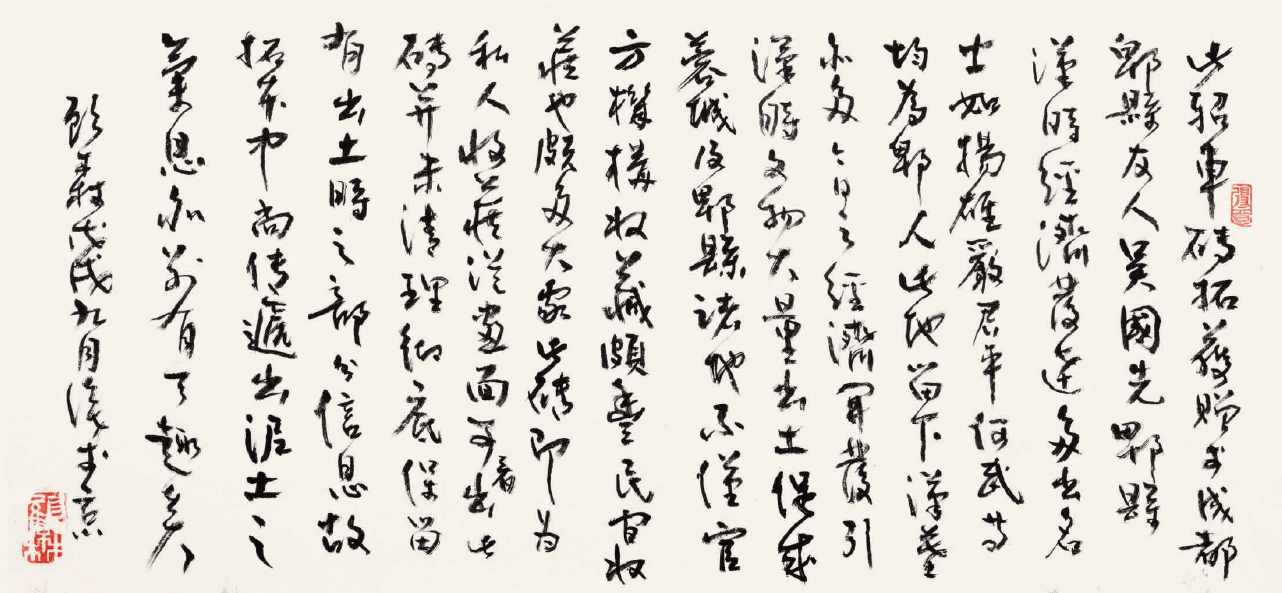 此軺車磚拓獲贈于成都
郫縣友人吴國先郫縣
漢時經濟發达多出名
士如揚雄嚴君平何武等
均為郫人此地留下漢墓
亦多今日之經濟開發引
漢時文物大量出土保
蓉城及郫縣諸地不僅官
方機構收藏頗豐民间收
藏也頗多大家此磚即为
私人收藏從畫面可看出此
磚并未清理彻底保留
有出土時之部分信息故
拓本中尚传遞出泥土之
氣息亦别有天趣矣
顾森戊戌九月識于京